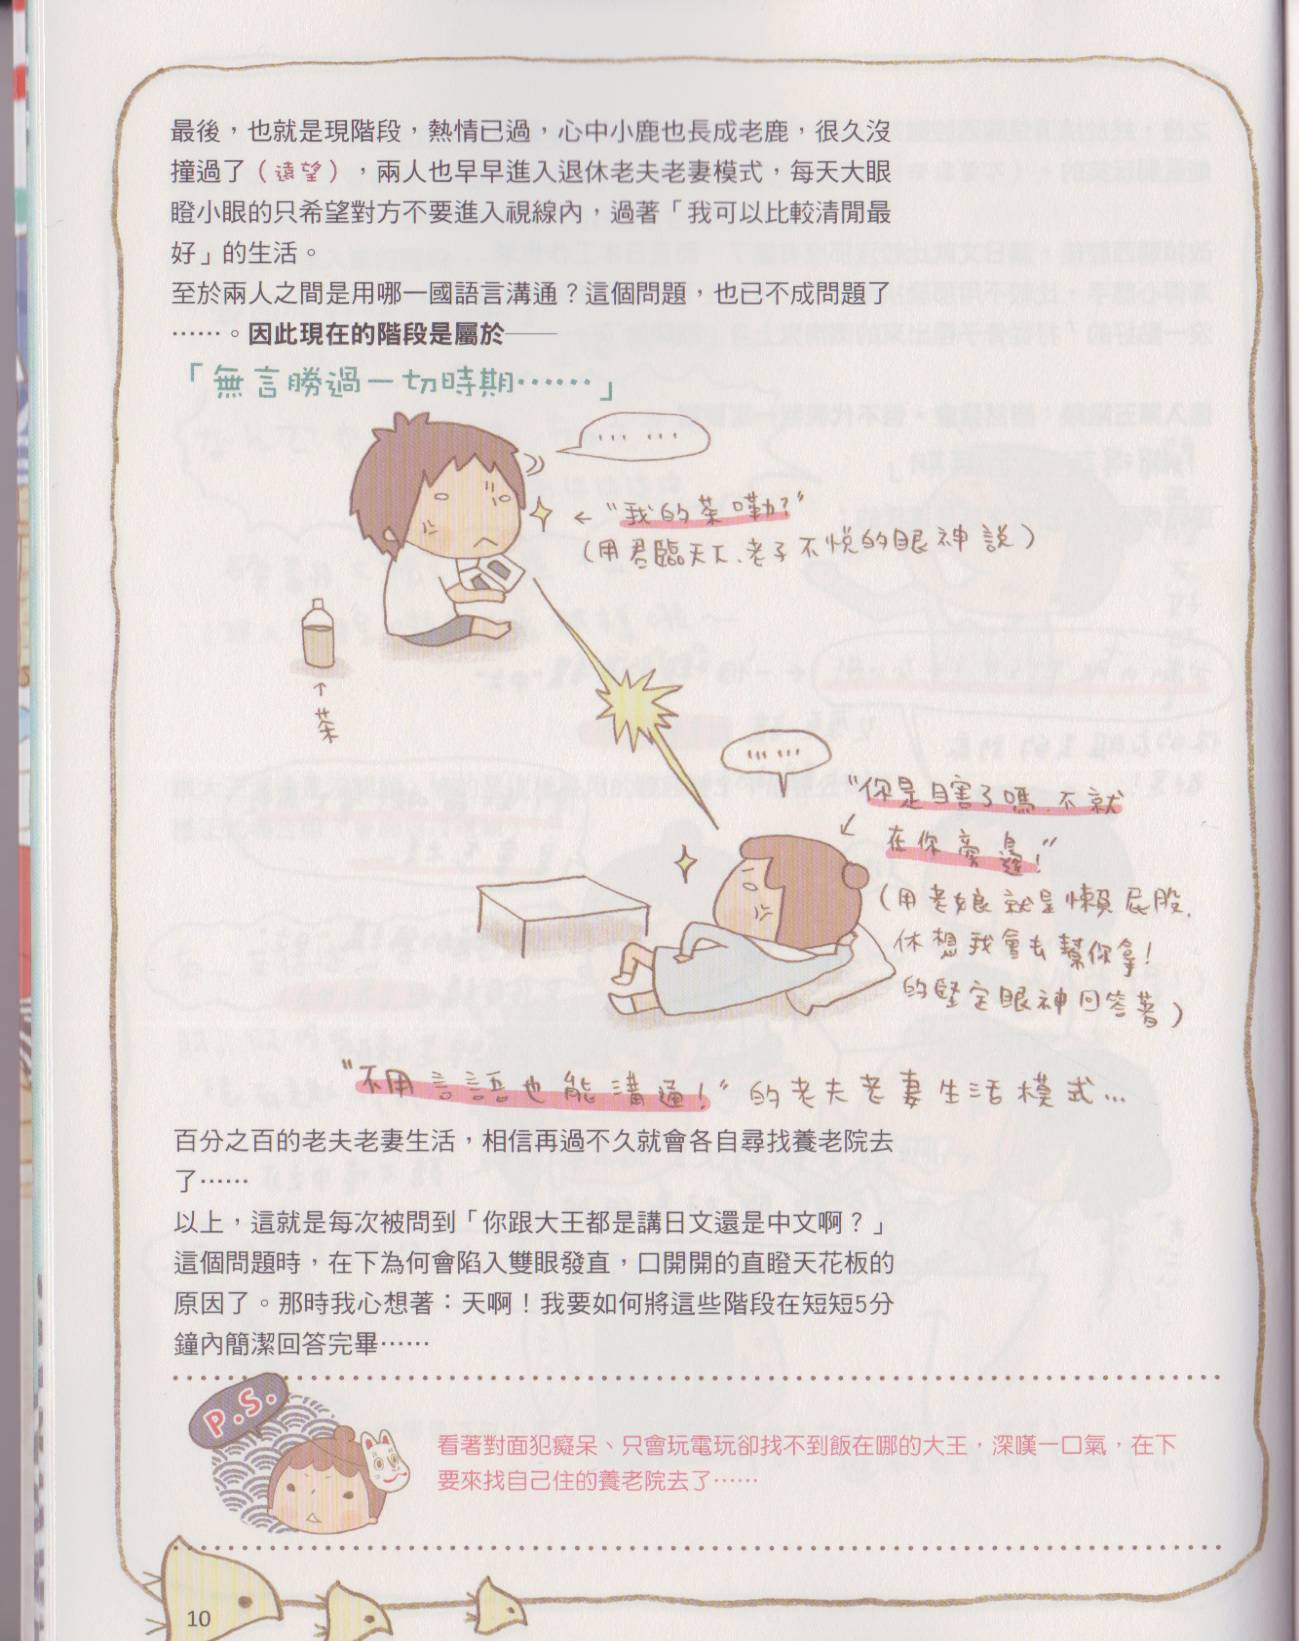 最後，也就是現階段，熱情已過，心中小鹿也長成老鹿，很久沒
撞過了（遠望），兩人也早早進入退休老夫老妻模式，每天大眼
瞪小眼的只希望對方不要進入視線內，過著「我可以比較清閒最
好」的生活。
至於兩人之間是用哪一國語言溝通？這個問題，也已不成問題了
……。因此現在的階段是屬於——
「無言勝過一切時期……」
…… ……
← "我的茶嘞？"
（用君臨天下、老子不悅的眼神說）
↑
茶
…… ……
"你是瞎了嗎、不就
在你旁邊！"
（用老娘就是懶屁股，
休想我會去幫你拿！
的堅定眼神回答著）
"不用言語也能溝通！"的老夫老妻生活模式…
百分之百的老夫老妻生活，相信再過不久就會各自尋找養老院去
了……
以上，這就是每次被問到「你跟大王都是講日文還是中文啊？」
這個問題時，在下為何會陷入雙眼發直，口開開的直瞪天花板的
原因了。那時我心想著：天啊！我要如何將這些階段在短短5分
鐘內簡潔回答完畢……
P.S.
看著對面犯癡呆、只會玩電玩卻找不到飯在哪的大王，深嘆一口氣，在下
要來找自己住的養老院去了……
10